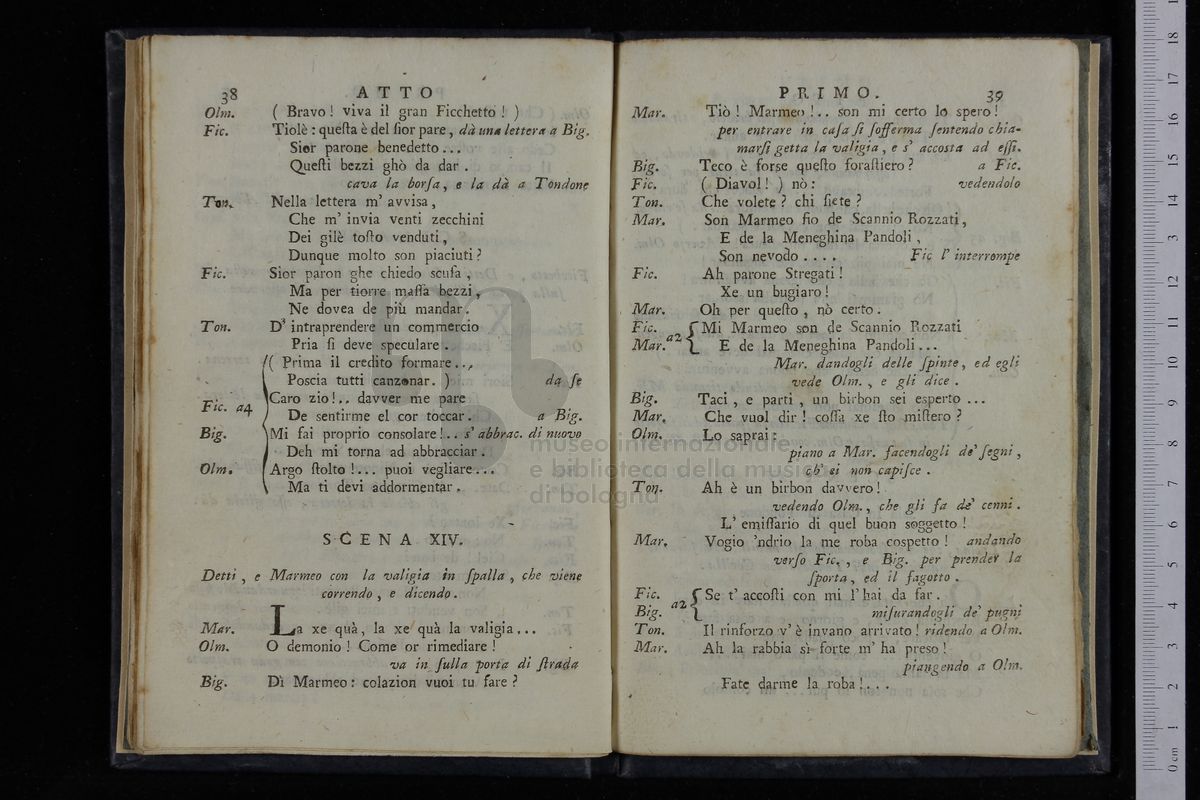 38 ATTO
Olm. ( Bravo! viva il gran Ficchetto! )
Fic. Tiolè: queſta è del ſior pare, dà una lettera a Big.
Sior parone benedetto...
Queſti bezzi ghò da dar.
cava la borſa, e la dà a Tondone
Ton. Nella lettera m' avviſa,
Che m' invia venti zecchini
Dei gilè toſto venduti,
Dunque molto son piaciuti?
Fic. Sior paron ghe chiedo scuſa,
Ma per tiorre maſſa bezzi,
Ne dovea de più mandar.
Ton. D' intraprendere un commercio
Pria ſi deve speculare.
( Prima il credito formare...
Poscia tutti canzonar. ) da ſe
Fic. a4 Caro zio!.. davver me pare
De sentirme el cor toccar. a Big.
Big. Mi fai proprio consolare!.. s' abbrac. di nuovo
Deh mi torna ad abbracciar.
Olm. Argo ſtolto!... puoi vegliare...
Ma ti devi addormentar.
SCENA XIV.
Detti, e Marmeo con la valigia in ſpalla, che viene
correndo, e dicendo.
Mar. La xe quà, la xe quà la valigia...
Olm. O demonio! Come or rimediare!
va in ſulla porta di ſtrada
Big. Dì Marmeo: colazion vuoi tu fare?
PRIMO. 39
Mar. Tiò! Marmeo!.. son mi certo lo spero!
per entrare in caſa ſi ſofferma ſentendo chia-
marſi getta la valigia, e s' accosta ad eſſi.
Big. Teco è forse queſto foraſtiero? a Fic.
Fic. ( Diavol! ) nò: vedendolo
Ton. Che volete? chi ſiete?
Mar. Son Marmeo fio de Scannio Rozzati,
E de la Meneghina Pandoli,
Son nevodo.... Fic l' interrompe
Fic. Ah parone Stregati!
Xe un bugiaro!
Mar. Oh per queſto, nò certo.
Fic. Mi Marmeo son de Scannio Rozzati
Mar. a2 E de la Meneghina Pandoli...
Mar. dandogli delle ſpinte, ed egli
vede Olm., e gli dice.
Big. Taci, e parti, un birbon sei esperto...
Mar. Che vuol dir! coſſa xe ſto miſtero?
Olm. Lo saprai:
piano a Mar. facendogli de' ſegni,
ch' ei non capiſce.
Ton. Ah è un birbon davvero!
vedendo Olm., che gli fa de' cenni.
L' emiſſario di quel buon soggetto!
Mar. Vogio 'ndrio la me roba cospetto! andando
verſo Fic., e Big. per prender la
ſporta, ed il fagotto.
Fic. Se t' accoſti con mi l' hai da far.
Big. a2 miſurandogli de' pugni
Ton. Il rinforzo v' è invano arrivato! ridendo a Olm.
Mar. Ah la rabbia sì forte m' ha preso!
piangendo a Olm.
Fate darme la roba!....
museo internazionale
e biblioteca della musica
di bologna
0 cm 1 2 3 4 5 6 7 8 9 10 11 12 13 14 15 16 17 18